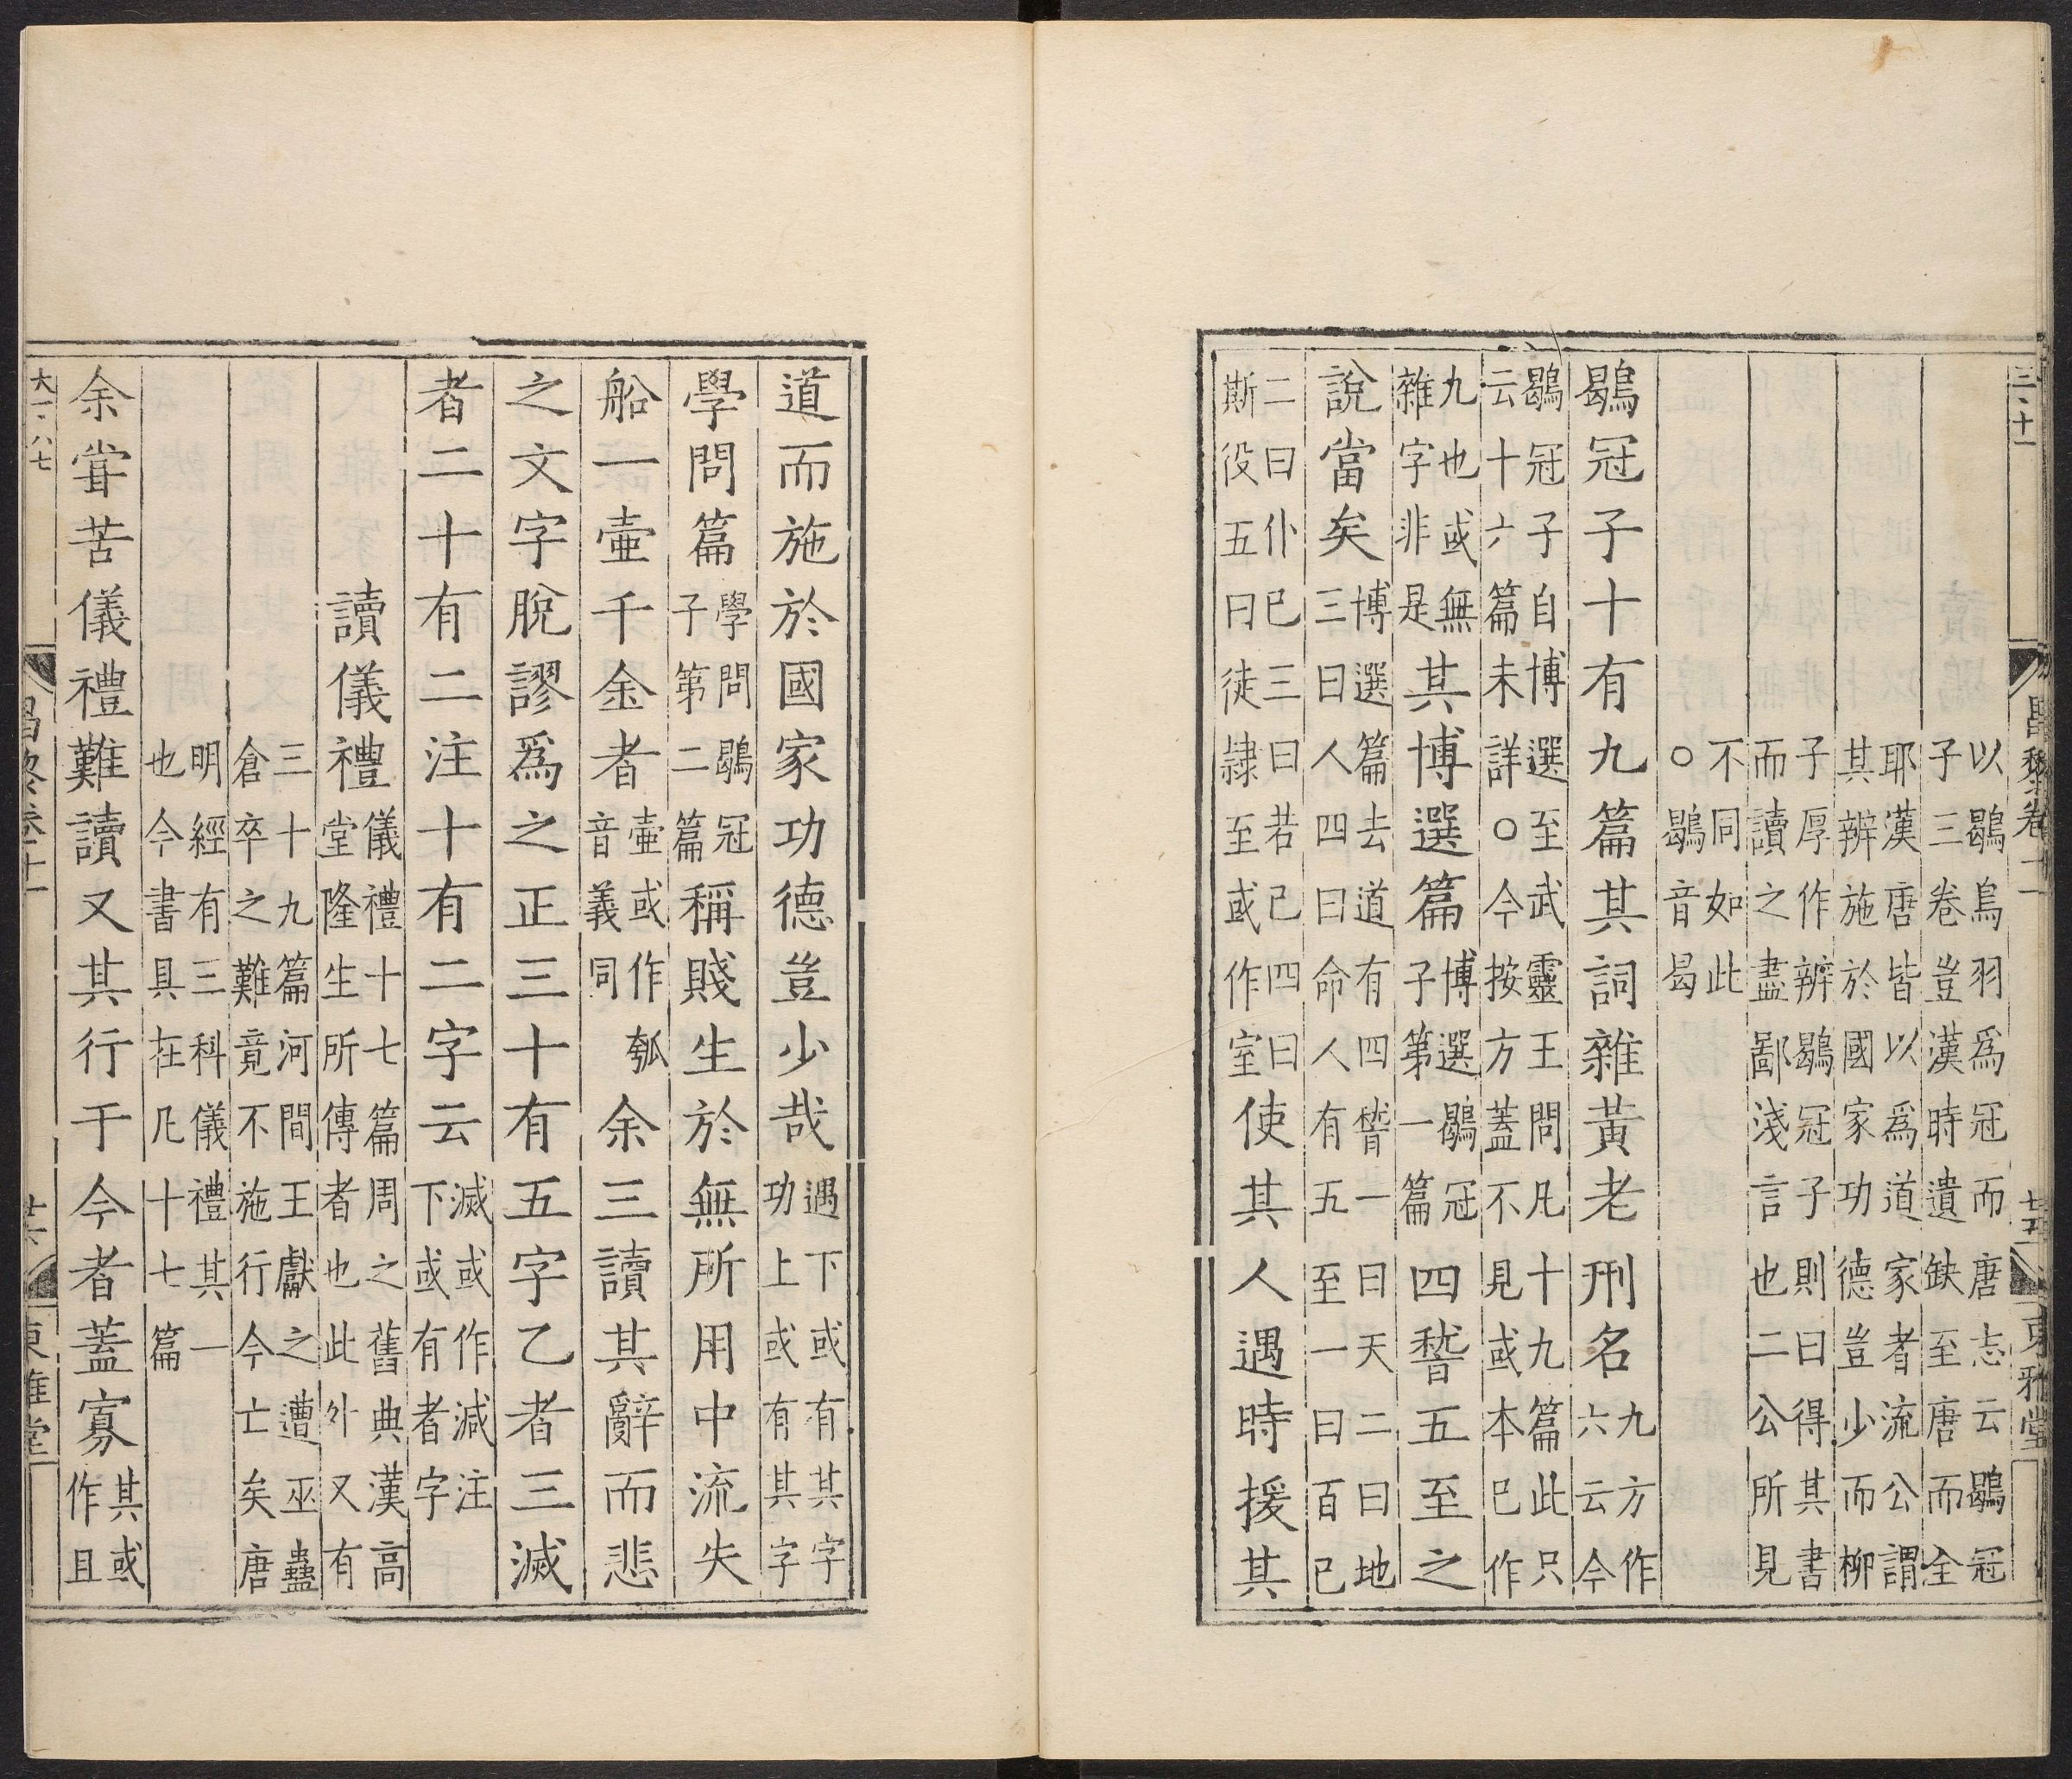 昌黎卷十一 廿五 東雅堂
以鶡鳥羽爲冠而唐志云鶡冠子三卷豈漢時遺缺至唐而全
耶漢唐皆以爲道家者流公謂其辨施於國家功德豈少而柳
子厚作辨鶡冠子則曰得其書而讀之盡鄙淺言也二公所見
不同如此○鶡音曷
鶡冠子十有九篇其詞雜黃老刑名九方作六云今
鶡冠子自博選至武靈王問凡十九篇此只云十六篇未詳○今按方蓋不見或本已作
九也或無雜字非是其博選篇博選鶡冠子第一篇四稽五至之
說當矣博選篇去道有四稽一曰天二曰地三曰人四曰命人有五至一曰百已
二曰仆已三曰若己四曰斯役五曰徒隷至或作室使其人遇時援其
道而施於國家功德豈少哉遇下或有其字功上或有其字
學問篇學問鶡冠子第二篇稱賤生於無所用中流失
船一壷千金者壷或作瓠音義同余三讀其辭而悲
之文字脫謬爲之正三十有五字乙者三滅
者二十有二注十有二字云滅或作減注下或有者字
讀儀禮儀禮十七篇周之舊典漢高堂隆生所傳者也此外又有
三十九篇河間王獻之遭巫蠱倉卒之難竟不施行今亡矣唐
明經有三科儀禮其一也今書具在凡十七篇
余甞苦儀禮難讀又其行于今者蓋寡其或作且
昌黎卷十一 廿六 東雅堂